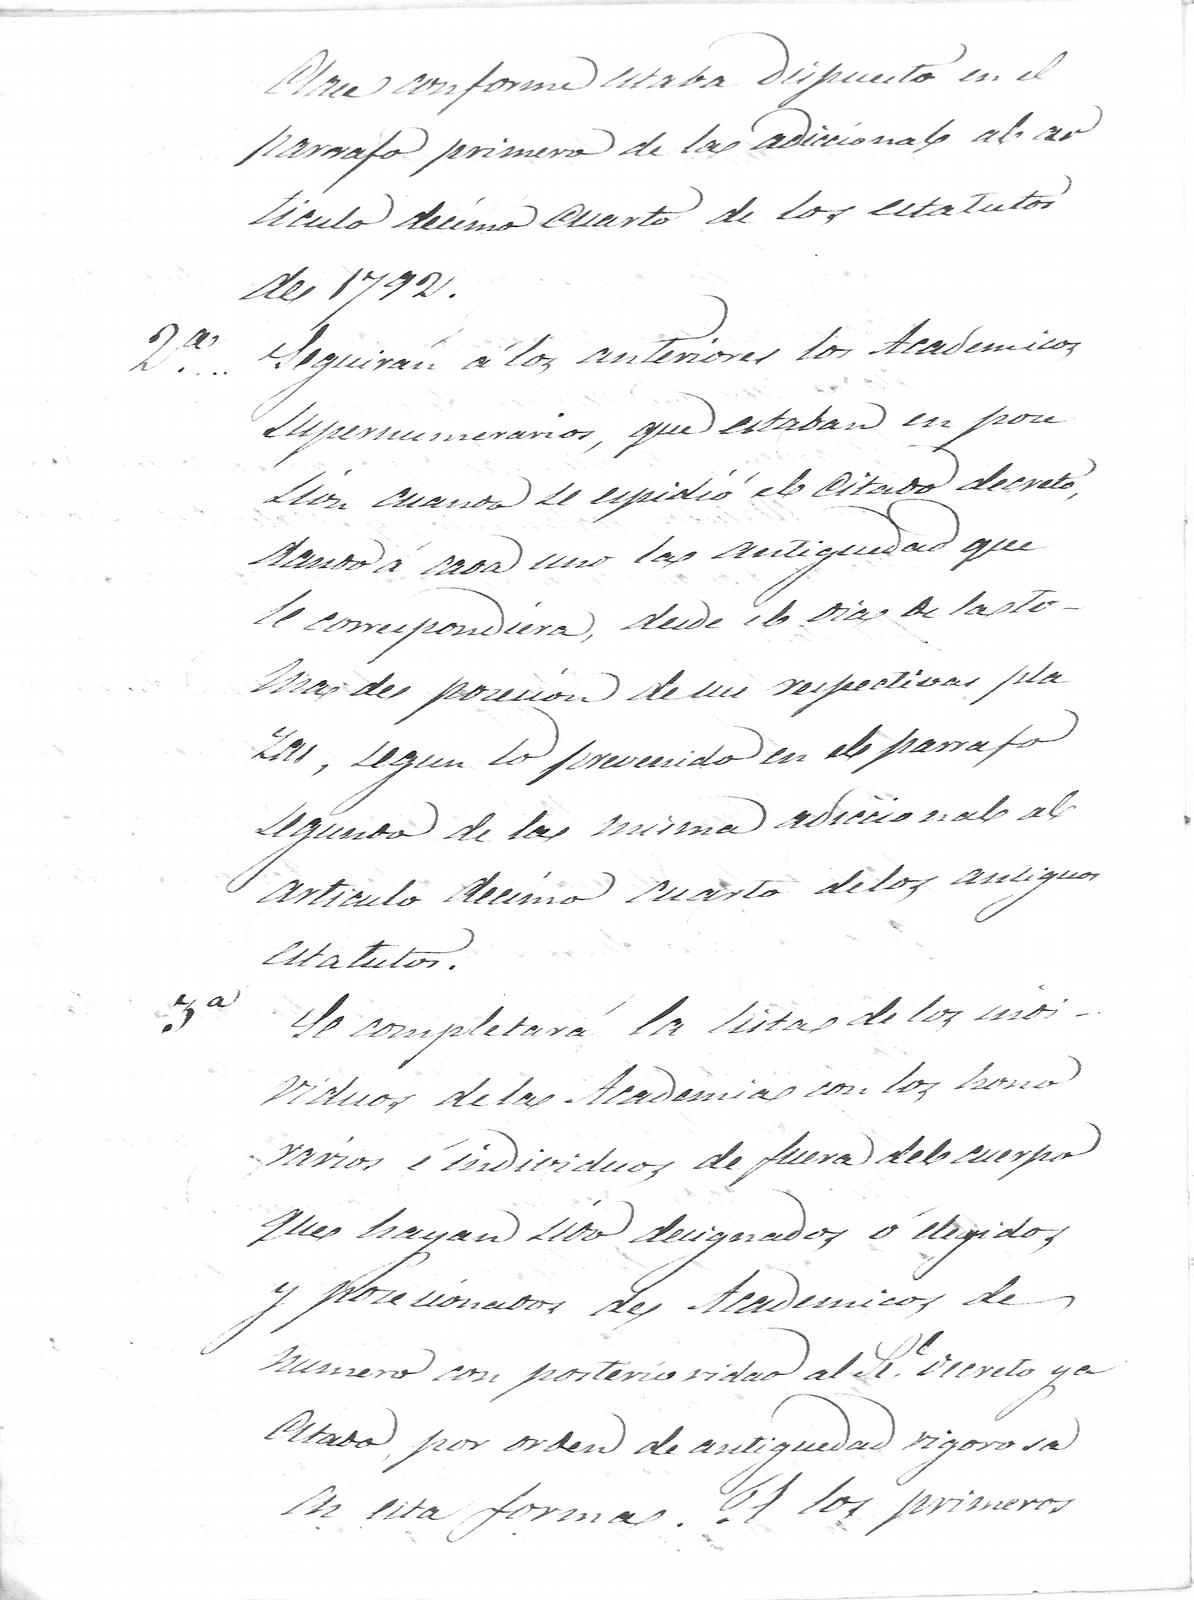 Clase conforme estaba dispuesto en el
parrafo primero de la adiccional al ar
ticulo decimo cuarto de los estatutos
de 1792.
2.ª... Seguirán á los anteriores los Academicos
supernumerarios, que estaban en pose
sion cuando se espidió el citado decreto,
dando á cada uno la antiguedad que
le correspondiera, desde el dia de la to-
ma de posesion de sus respectivas pla
zas, segun lo prevenido en el parrafo
segundo de la misma adiccional al
articulo decimo cuarto de los antiguos
estatutos.
3ª Se completará la lista de los indi-
viduos de la Academia con los hono
rarios é individuos de fuera del cuerpo
que hayan sido designados ó elegidos
y posesionados de Academicos de
numero con posterioridad al Rl. decreto ya
citado, por orden de antiguedad rigorosa
en esta forma. los primeros